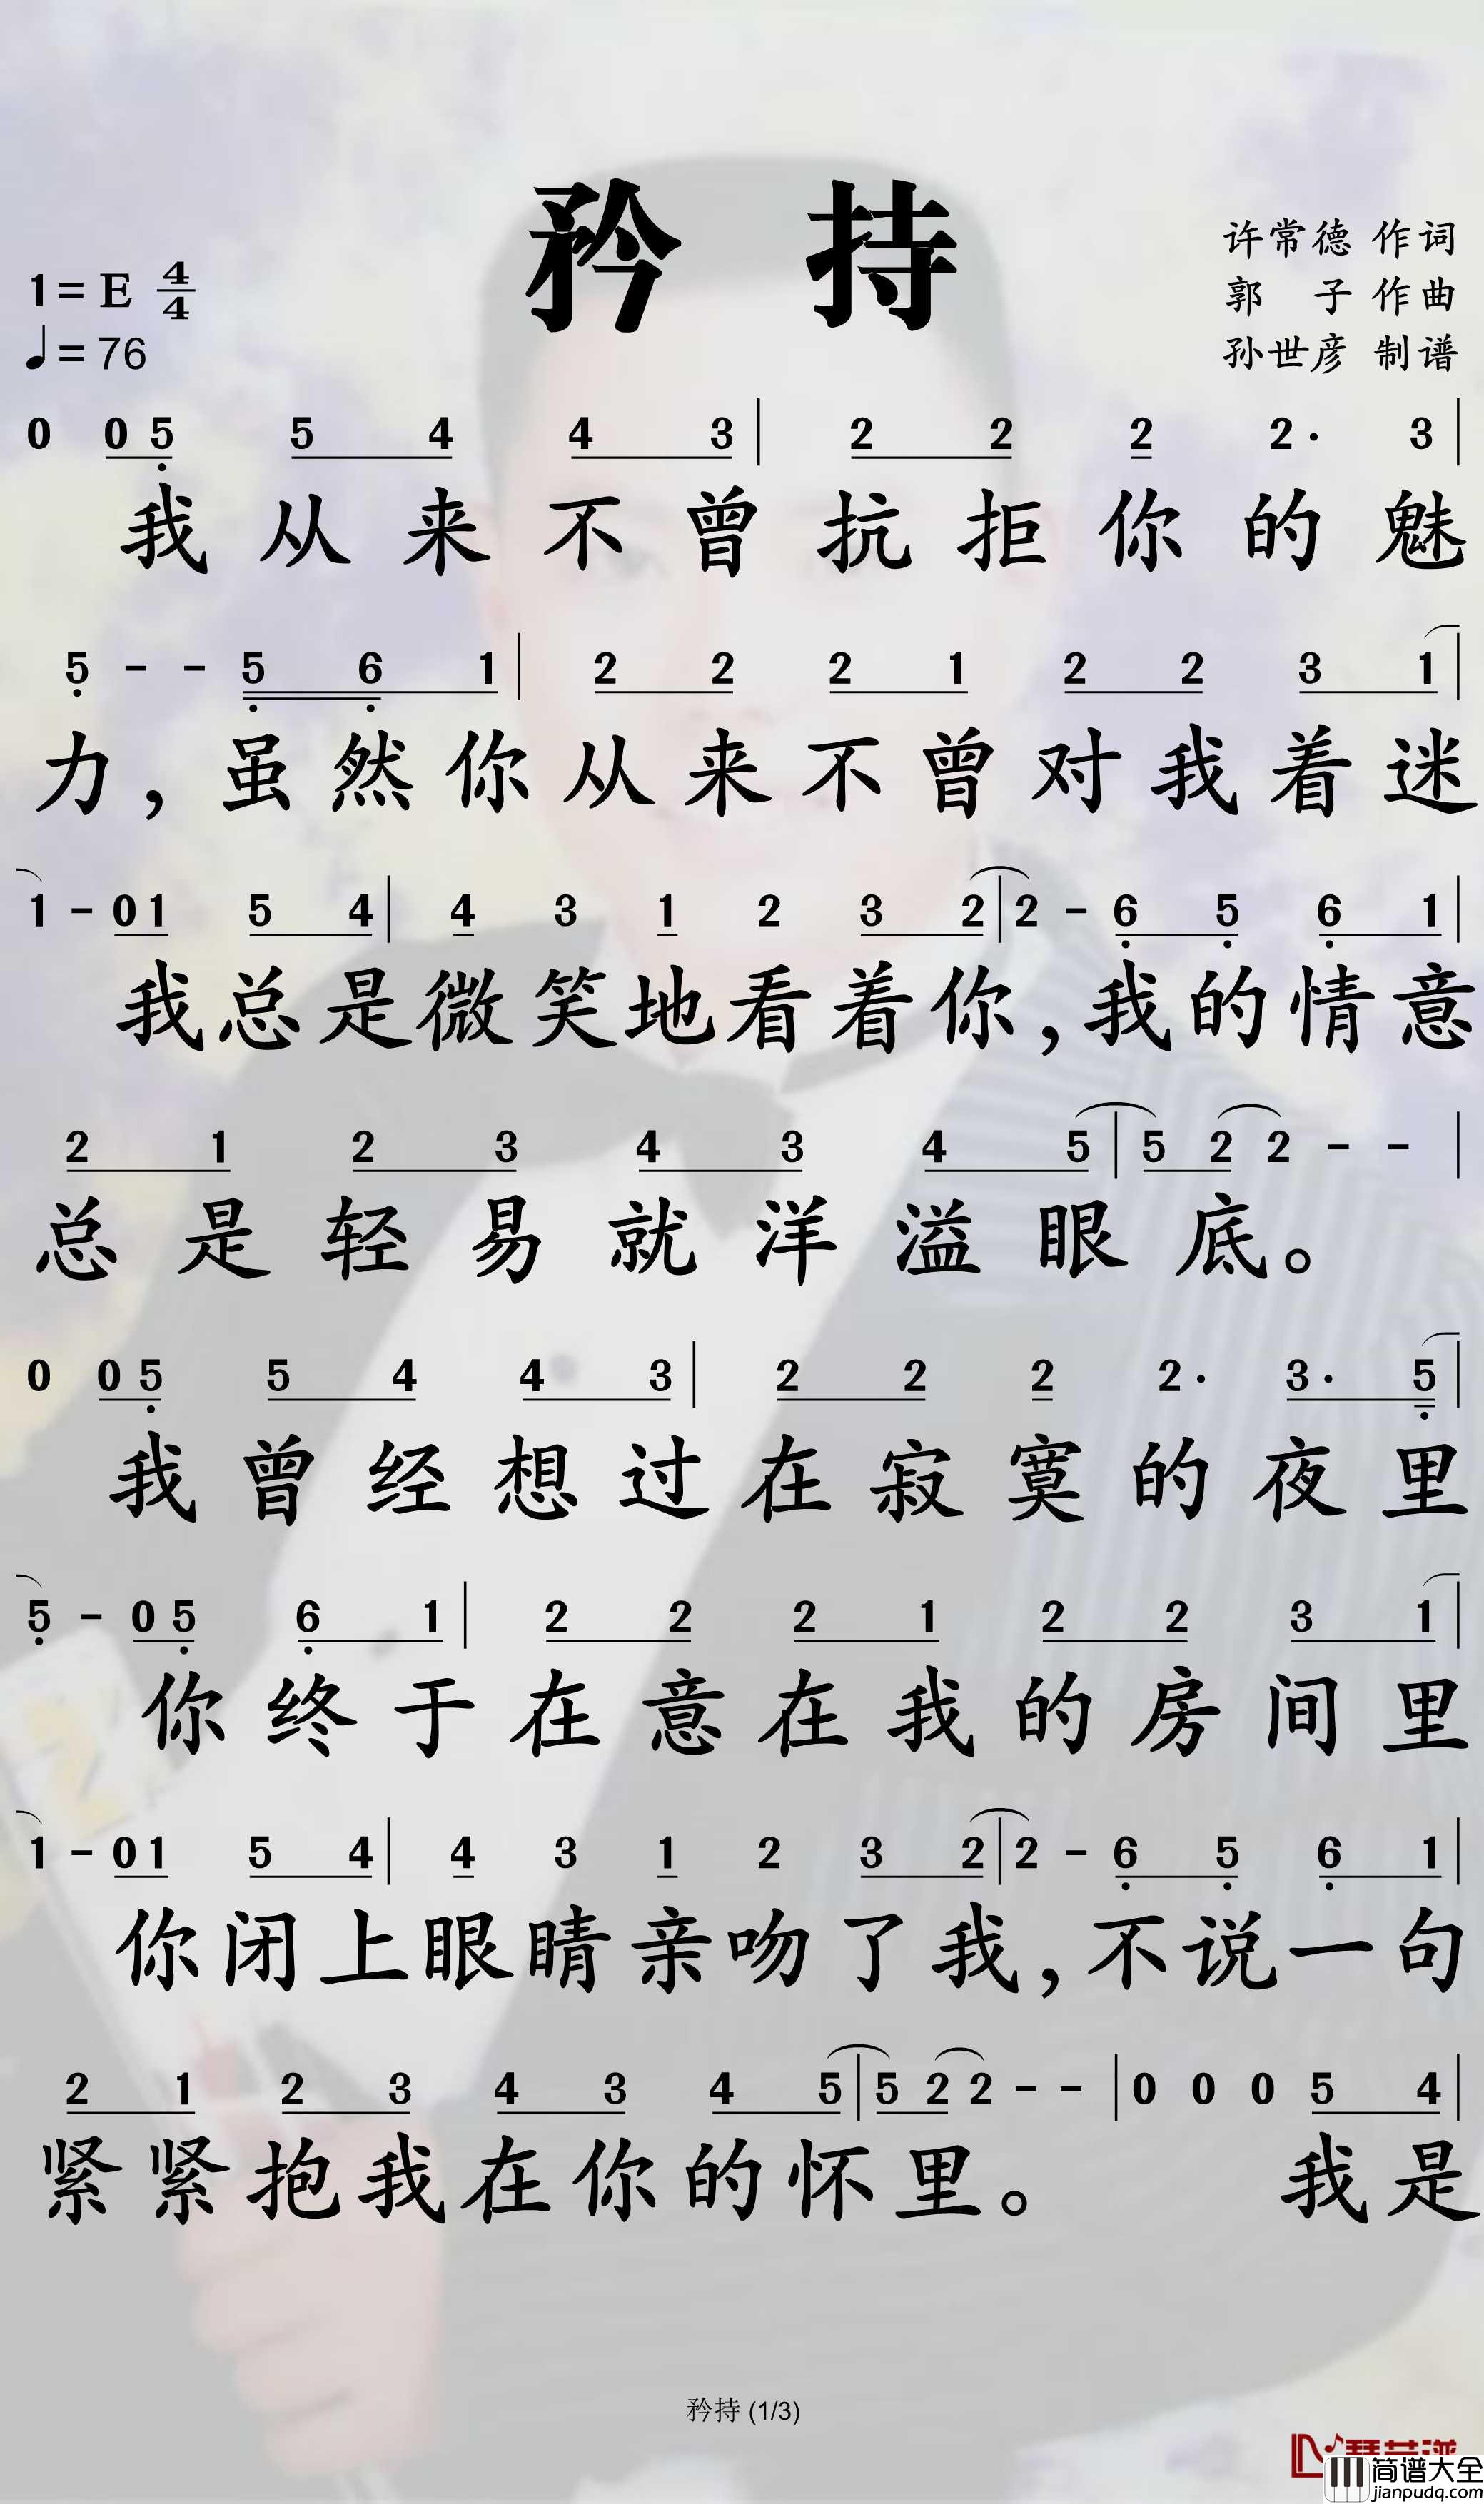 矜 持
许常德 作词
郭 子 作曲
孙世彦 制谱
1= E 4/4
♩= 76
0 0 5 5 4 4 3 | 2 2 2 2· 3 |
我从来不曾抗拒你的魅
5 - - 5 6 1 | 2 2 2 1 2 2 3 1 |
力，虽然你从来不曾对我着迷
1 - 0 1 5 4 | 4 3 1 2 3 2 | 2 - 6 5 6 1 |
我总是微笑地看着你，我的情意
2 1 2 3 4 3 4 5 | 5 2 2 - - |
总是轻易就洋溢眼底。
0 0 5 5 4 4 3 | 2 2 2 2· 3· 5 |
我曾经想过在寂寞的夜里
5 - 0 5 6 1 | 2 2 2 1 2 2 3 1 |
你终于在意在我的房间里
1 - 0 1 5 4 | 4 3 1 2 3 2 | 2 - 6 5 6 1 |
你闭上眼睛亲吻了我，不说一句
2 1 2 3 4 3 4 5 | 5 2 2 - - | 0 0 0 5 4 |
紧紧抱我在你的怀里。 我是
矜持 (1/3)
简谱大全
jianpudq.com